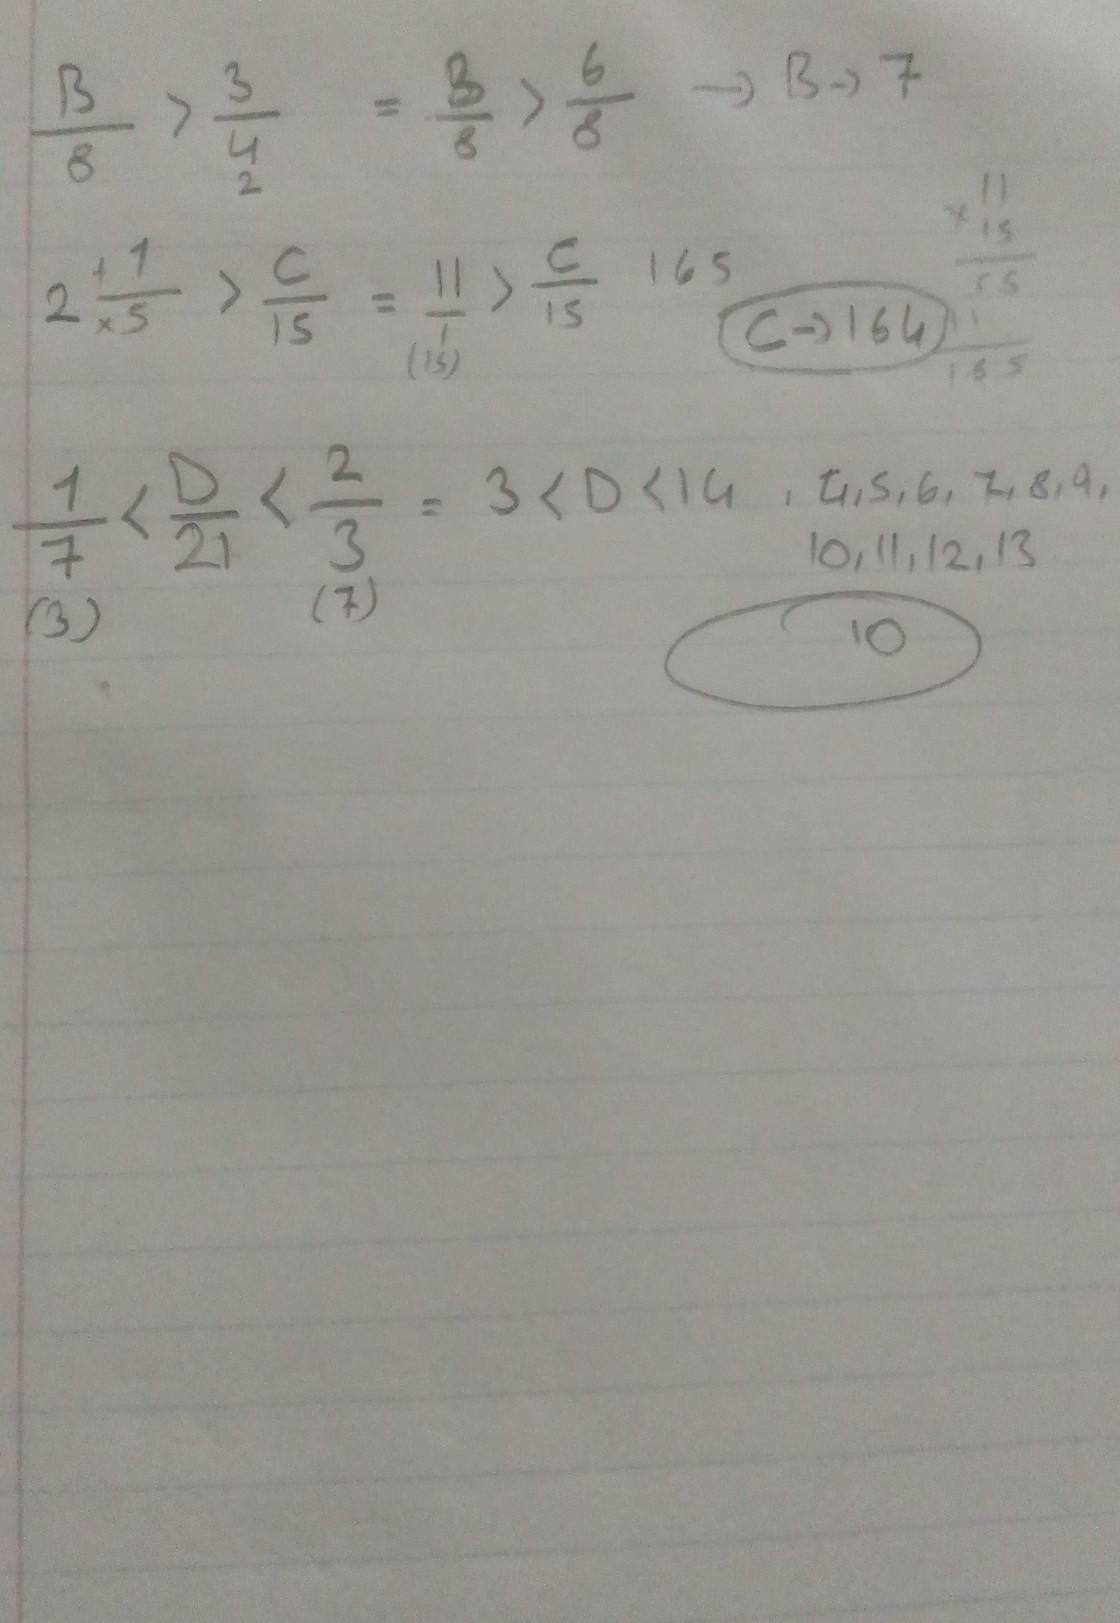 B/8 > 3/4 = B/8 > 6/8 → B → 7
2
2 + 1/×5 > C/15 = 11/1 > C/15 165
(15)
C → 164
11
× 15
55
11
165
1/7 < D/21 < 2/3 = 3 < D < 14 , 4, 5, 6, 7, 8, 9,
10, 11, 12, 13
(3) (7)
10